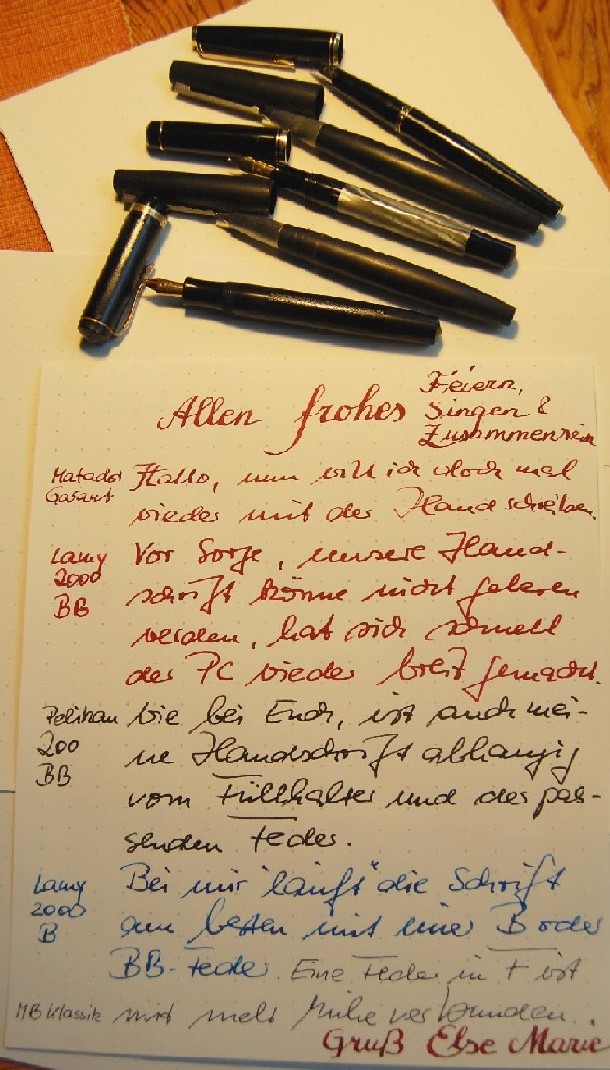 Allen frohes Feiern,
Singen &
Zusammensein
Matador Garant
Hallo, nun will ich doch mal
wieder mit der Hand schreiben.
Lamy 2000 BB
Vor Sorge, unsere Hand-
schrift könne nicht gelesen
werden, hat sich schnell
der PC wieder breit gemacht.
Pelikan 200 BB
Wie bei Euch, ist auch mei-
ne Handschrift abhängig
vom Füllhalter und der pas-
senden Feder.
Lamy 2000 B
Bei mir "läuft" die Schrift
am besten mit einer B oder
BB-Feder. Eine Feder in F ist
MB Klassik
mit mehr Mühe verbunden.
Gruß Else Marie